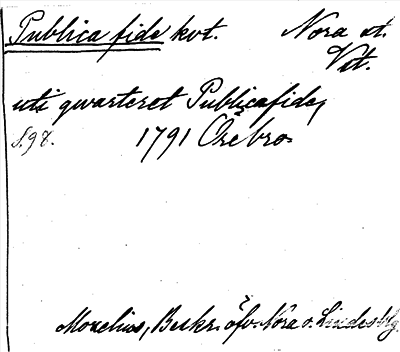 Publica fide kvt. Nora st.
Vst.
uti qwarteret Publicafide,
s. 98. 1791 Örebro
Morelius, Beskr. öfv. Nora o. Lindesblg.